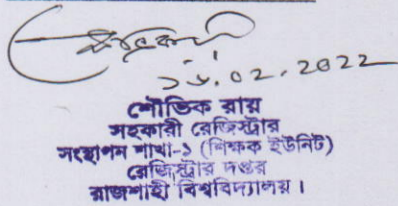 ২৮.০২.২০২২
শৌভিক রায়
সহকারী রেজিস্ট্রার
সংস্থাপন শাখা-১ (শিক্ষক ইউনিট)
রেজিস্ট্রার দপ্তর
রাজশাহী বিশ্ববিদ্যালয়।